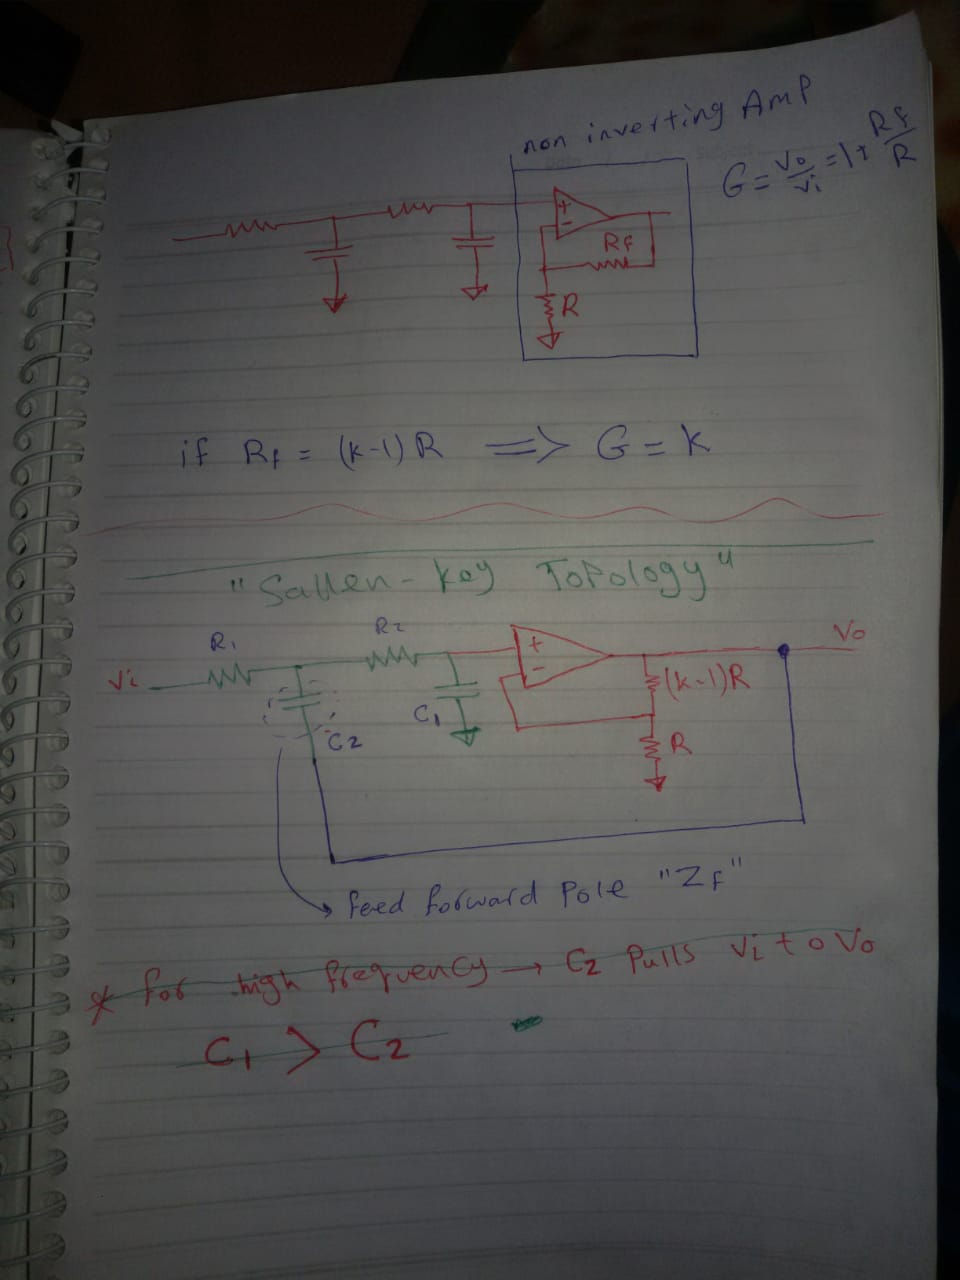 non inverting AmP
G = Vo/Vi = 1 + Rf/R
Rf
R
if Rf = (k-1)R => G = k
"Sallen-key Topology"
R1
R2
Vi
C2
C1
(k-1)R
R
Vo
feed forward Pole "ZF"
* for high frequency → C2 Pulls Vi to Vo
C1 > C2